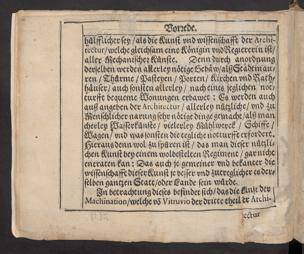 Vorrede.
hülfflicher sey / als die Kunst vnd wissenschafft der Archi-
tectur / welche gleichsam eine Königin vnd Regiererin ist /
aller Mechanischer Künste. Denn durch anordnung
derselben werden allerley nötige Gebäw / als Städt mau-
ren / Thürme / Pasteyen / Porten / Kirchen vnd Rath-
häuser / auch sonsten allerley / nach eines jeglichen not-
turfft bequeme Wonungen erbawet: Es werden auch
auß angeben der Architectur / allerley nützliche / vnd zu
Menschlicher narung sehr nötige dinge gemacht / als man
cherley Wasserkünste / vielerley Mühlwerck / Schiffe /
Wagen / vnd was sonsten die tegliche notturfft erfordert.
Hieraus denn wol zu spüren ist / das man dieser nützli-
chen Kunst bey einem wolbestelten Regiment / gar nicht
entraten kan: Das auch je gemeiner vnd bekanter die
wissenschafft dieser Kunst / je besser vnd zutreglicher es der-
selben gantzen Statt / oder Lande sein würde.
In betrachtung dieses befindet sich / das die Kunst der
Machination / welche vō Vitruvio der dritte theil der Archi-
tectur